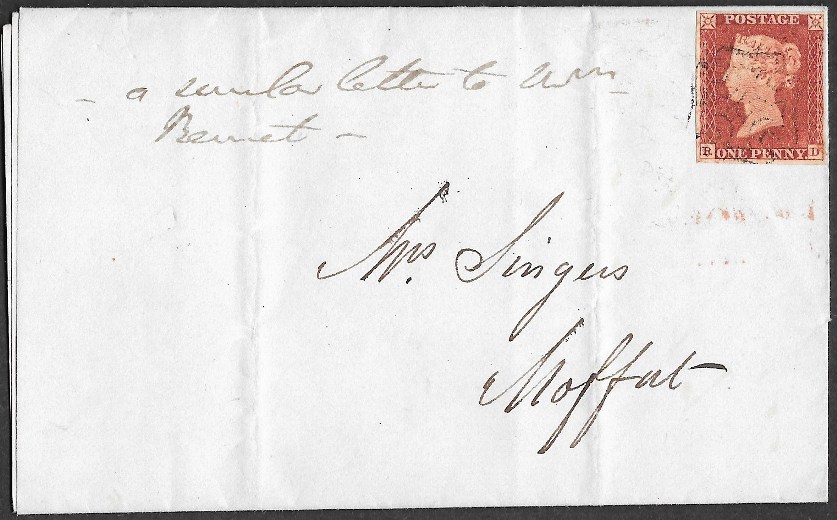 POSTAGE
R ONE PENNY D
- a similar letter to Wm
Bennet -
Mrs. Singers
Moffat